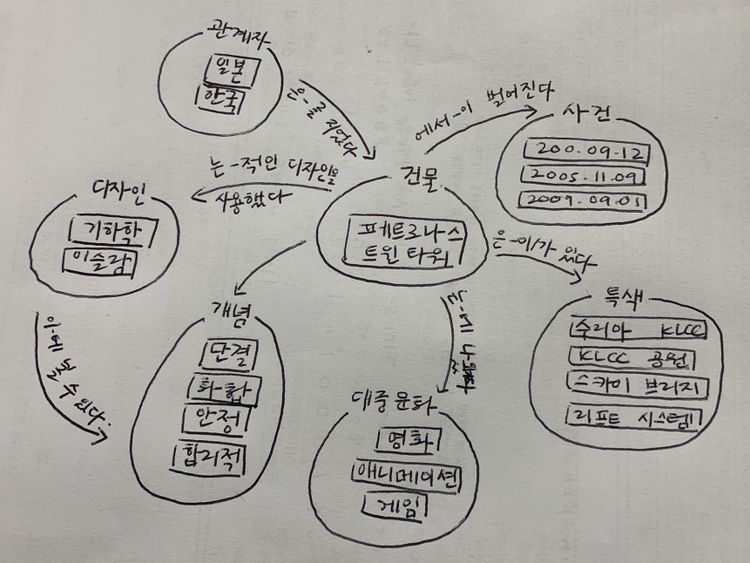 관계자
일본
한국
은-를 지었다
에서-이 벌어진다
사건
200.09.12
2005.11.09
2009.09.01
는-적인 디자인을
사용했다
디자인
기하학
이슬람
건물
페트로나스
트윈 타워
은-이/가 있다
특색
수리아 KLCC
KLCC 공원
스카이 브리지
리프트 시스템
개념
단결
화합
안정
합리적
볼 수 있다.
대중문화
영화
애니메이션
게임